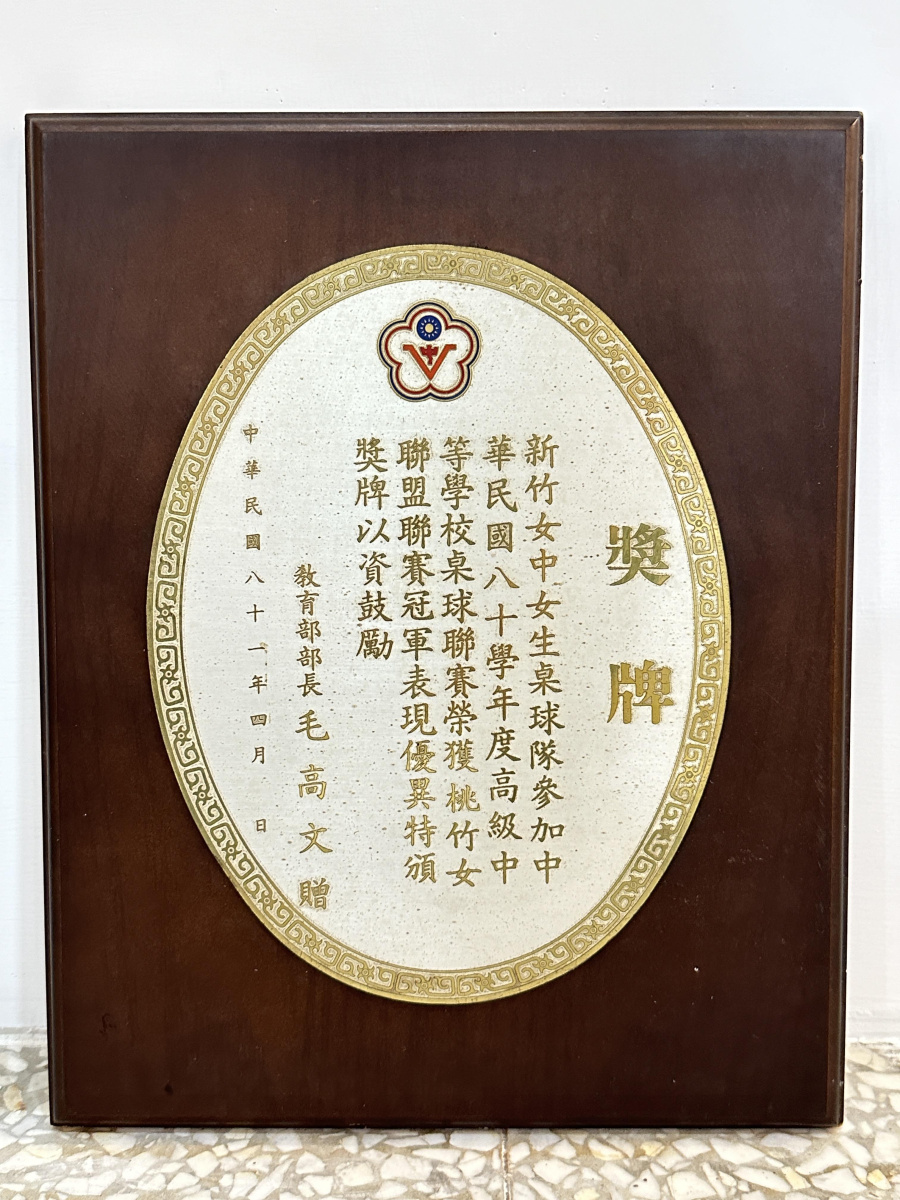 獎牌
新竹女中女生桌球隊參加中
華民國八十學年度高級中
等學校桌球聯賽榮獲桃竹女
聯盟聯賽冠軍表現優異特頒
獎牌以資鼓勵
教育部部長毛高文贈
中華民國八十一年四月 日
中